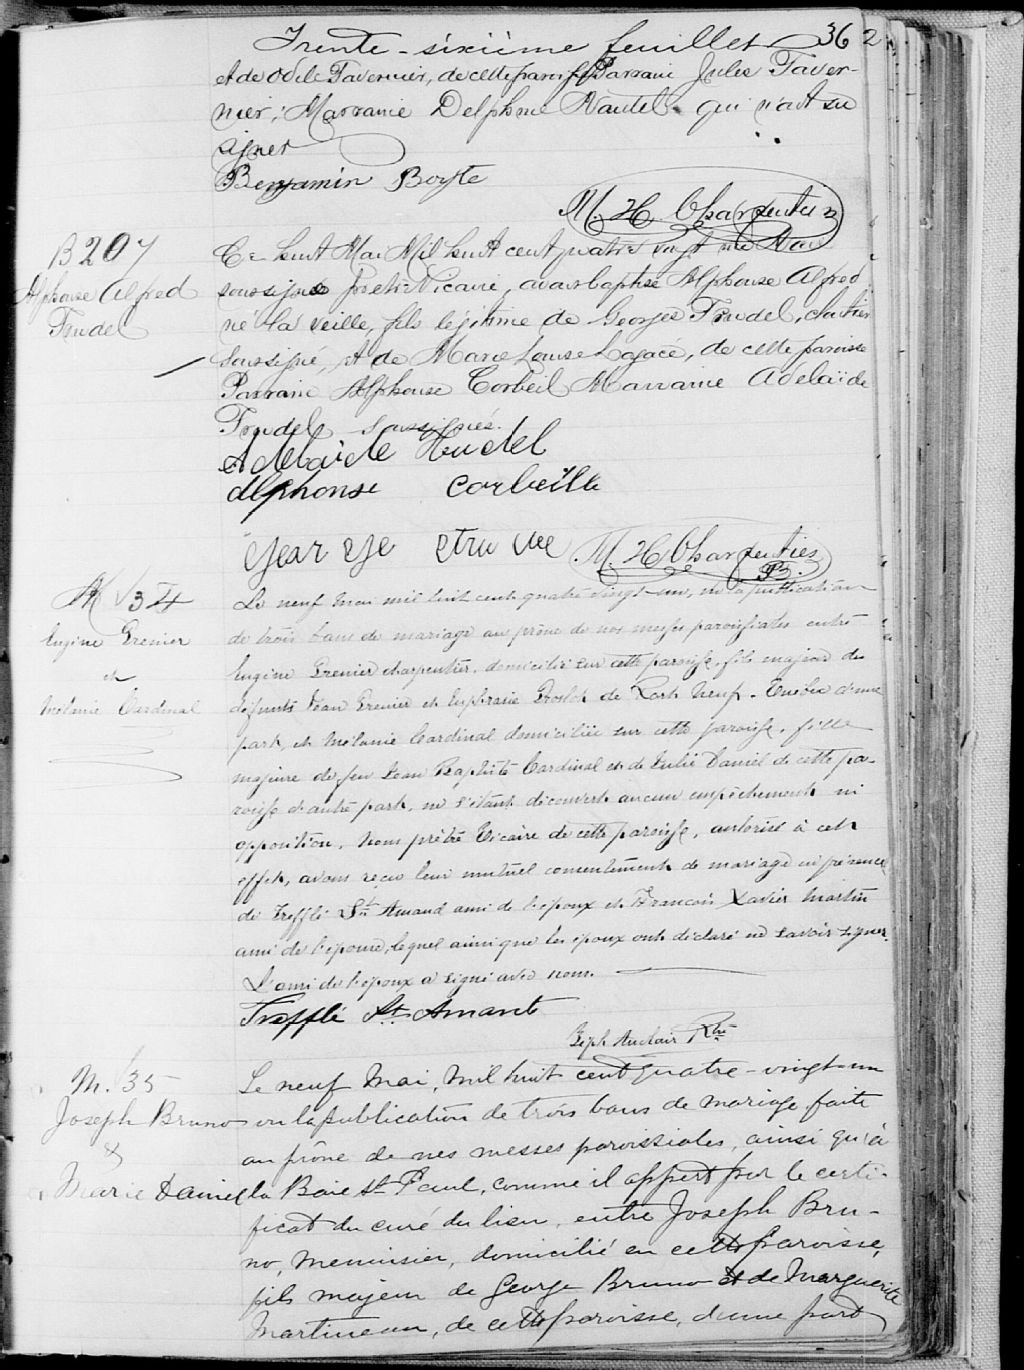 Trente-sixième feuillet 36 2
et de Odile Tavernier, de cette paroisse Parrain Jules Taver-
nier, Marraine Delphine Nautel qui n'ont su
signer
Benjamin Boyte
M. H. Charpentier
B 207
Alphonse Alfred
Trudel
Ce huit Mai Mil huit cent quatre vingt un Nous
soussigné Prêtre Vicaire, avons baptisé Alphonse Alfred
né la veille, fils légitime de Georges Trudel,
soussigné, et de Marie Louise Lagacé, de cette paroisse
Parrain Alphonse Corbeil Marraine Adelaïde
Trudel soussignés.
Adelaide Trudel
alphonse corbeille
M. H. Charpentier
Ptr.
M 34
Eugène Grenier
et
Mélanie Cardinal
Le neuf mai mil huit cent quatre vingt-un, vu la publication
de trois bans de mariage au prône de nos messes paroissiales entre
Eugène Grenier charpentier, domicilié sur cette paroisse, fils majeur de
défunts Jean Grenier et Euphrasie de Port Neuf - Québec d'une
part, et Mélanie Cardinal domiciliée sur cette paroisse, fille
majeure de feu Jean Baptiste Cardinal et de Julie Daniel de cette pa-
roisse d'autre part, ne s'étant découvert aucun empêchement ni
opposition, nous prêtre Vicaire de cette paroisse, autorisé à cet
effet, avons reçu leur mutuel consentement de mariage en présence
de Trefflé St Amand ami de l'époux et François Xavier Martin
ami de l'épouse, lequel ainsi que les époux ont déclaré ne savoir signer.
L'ami de l'époux a signé avec nous.
Trefflé St. Amant
Jeph Auclair Ptre
M. 35
Joseph Bruno
&
Marie Daniel
Le neuf Mai, mil huit cent quatre-vingt-un
vu la publication de trois bans de mariage faite
au prône de nos messes paroissiales, ainsi qu'à
la Baie St. Paul, comme il appert par le certi-
ficat du curé du lieu, entre Joseph Bru-
no, menuisier, domicilié en cette paroisse,
fils majeur de George Bruno et de Marguerite
Martineau, de cette paroisse, d'une part